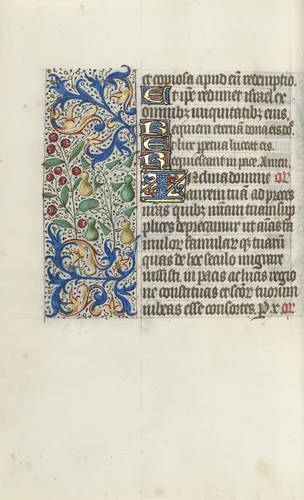 et copiosa apud eū redemptio.
Et ip̄e redimet israel ex
omnibȝ iniquitatibȝ eius
Requiem eternā dona eis dn̄e.
Et lux perpetua luceat eis.
Requiescant in pace. Amen.
Inclina domine or
aurem tuā ad preces
n̄ras quibȝ m̄iam tuam sup
plices deprecamur ut aīas fa
mulor famular qȝ tuarū
quas de hoc seculo migrare
iussisti in pacis ac lucis regio
ne constituas et sc̄or tuorum
iubeas esse consortes. P. x or